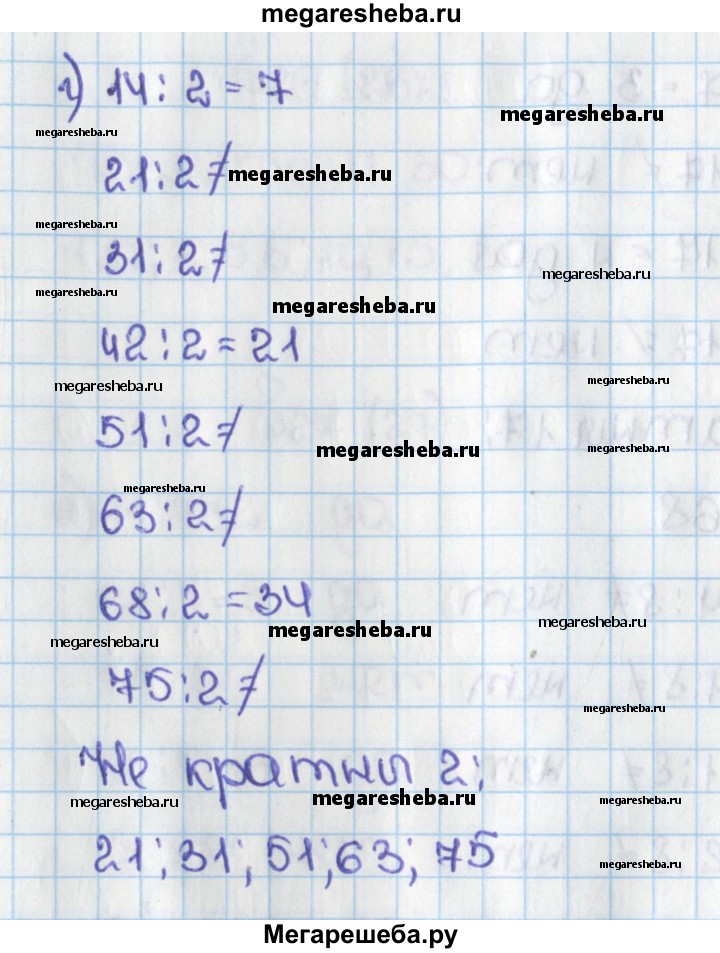 megaresheba.ru
г) 14 : 2 = 7
megaresheba.ru
megaresheba.ru
21 : 2 ≠
megaresheba.ru
megaresheba.ru
31 : 2 ≠
megaresheba.ru
megaresheba.ru
megaresheba.ru
42 : 2 = 21
megaresheba.ru
megaresheba.ru
51 : 2 ≠
megaresheba.ru
megaresheba.ru
megaresheba.ru
63 : 2 ≠
68 : 2 = 34
megaresheba.ru
megaresheba.ru
megaresheba.ru
75 : 2 ≠
megaresheba.ru
Не кратны 2:
megaresheba.ru
megaresheba.ru
megaresheba.ru
21; 31; 51; 63; 75
megaresheba.ru
Мегарешеба.ру